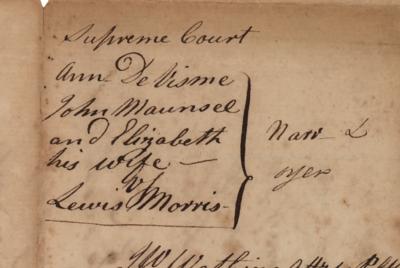 Supreme Court
Ann DeVisme
John Maunsel
and Elizabeth
his wife —
vs
Lewis Morris
Narr &
oyer